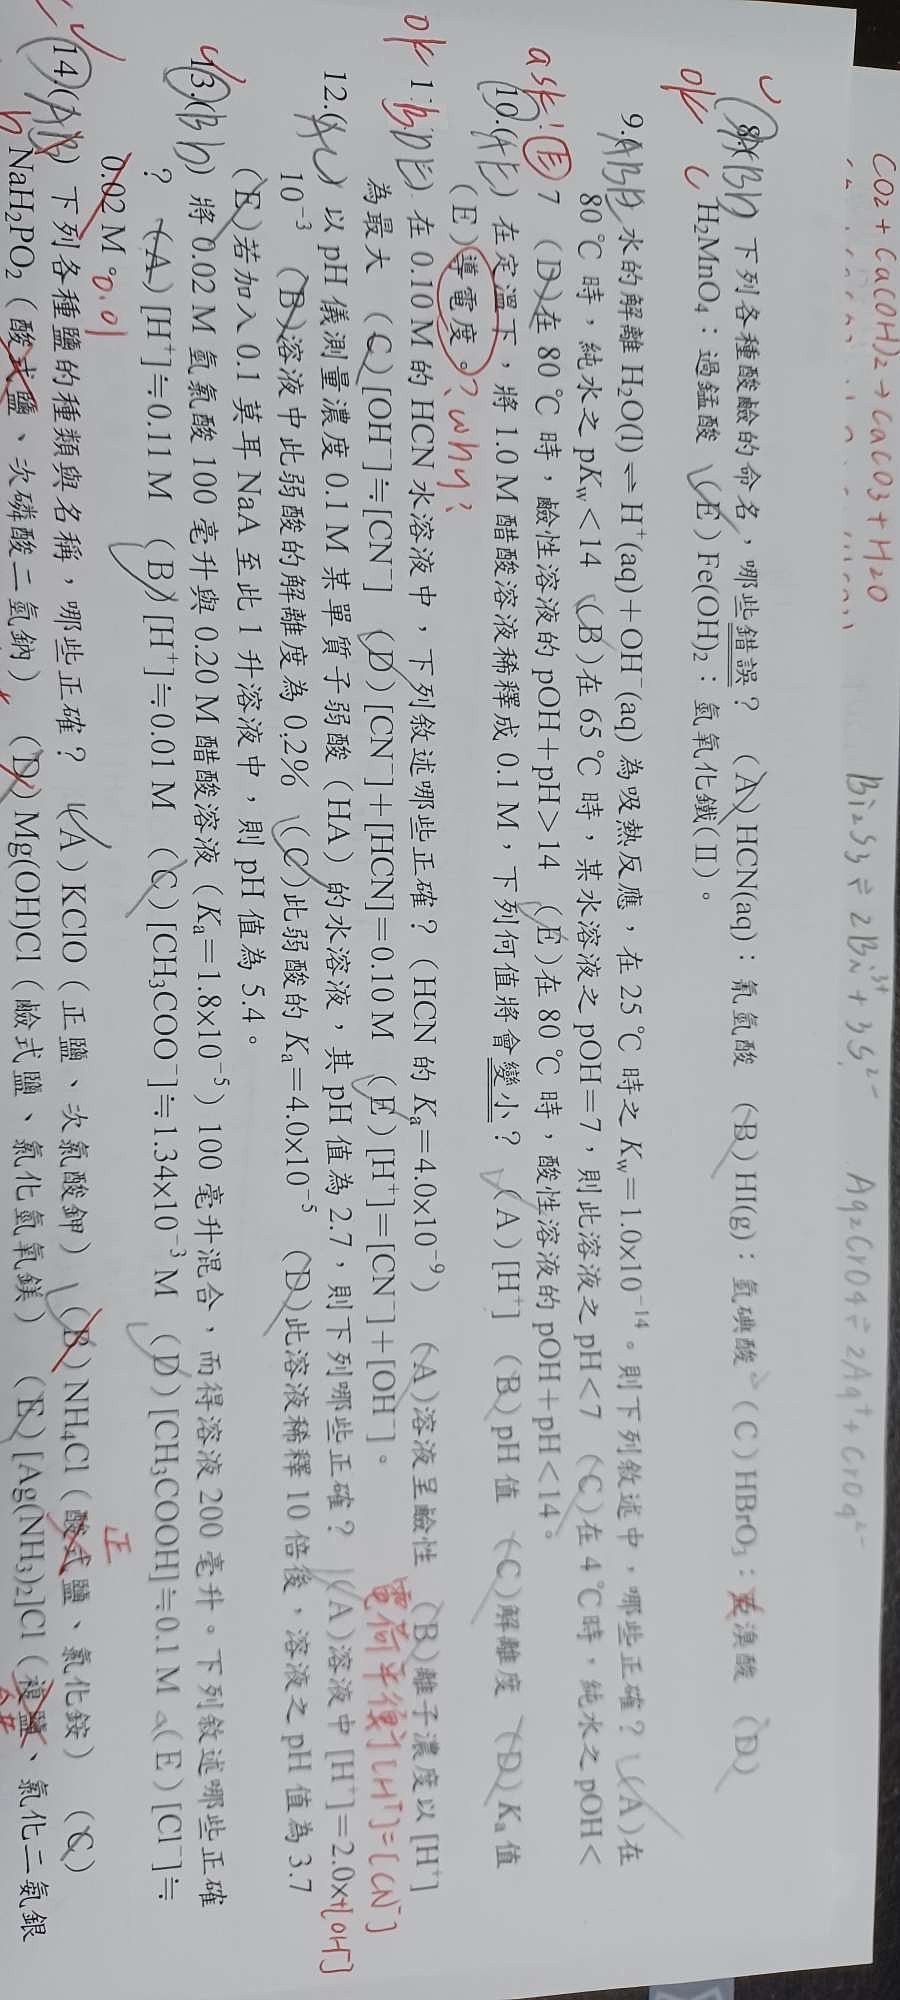 CO2 + Ca(OH)2 → CaCO3 + H2O
Bi2S3 ⇌ 2Bi³⁺ + 3S²⁻
Ag2CrO4 ⇌ 2Ag⁺ + CrO4²⁻
8.(BD) 下列各種酸鹼的命名，哪些錯誤？ (A) HCN(aq)：氰氫酸 (B) HI(g)：氫碘酸 (C) HBrO₃：溴酸 (D)
ok
H₂MnO₄：過錳酸 (E) Fe(OH)₂：氫氧化鐵(II)。
9.ABD 水的解離 H₂O(l) ⇌ H⁺(aq)+OH⁻(aq) 為吸熱反應，在 25℃ 時之 Kw＝1.0x10⁻¹⁴。則下列敘述中，哪些正確？ (A)在
80℃ 時，純水之 pKw＜14 (B)在 65℃ 時，某水溶液之 pOH＝7，則此溶液之 pH＜7 (C)在 4℃時，純水之 pOH＜
7 (D)在 80℃ 時，鹼性溶液的 pOH＋pH＞14 (E)在 80℃ 時，酸性溶液的 pOH＋pH＜14。
ask! (E)
10.(AE) 在定溫下，將 1.0 M 醋酸溶液稀釋成 0.1 M，下列何值將會變小？ (A) [H⁺] (B) pH 值 (C)解離度 (D) Ka 值
(E)導電度。? why?
ok
1 BDE) 在 0.10 M 的 HCN 水溶液中，下列敘述哪些正確？(HCN 的 Ka＝4.0x10⁻⁹) (A)溶液呈鹼性 (B)離子濃度以 [H⁺]
為最大 (C) [OH⁻]≒[CN⁻] (D) [CN⁻]＋[HCN]＝0.10 M (E) [H⁺]＝[CN⁻]＋[OH⁻]。
電荷平衡 [H⁺]=[CN⁻]
+[OH⁻]
12.(AC) 以 pH 儀測量濃度 0.1 M 某單質子弱酸（HA）的水溶液，其 pH 值為 2.7，則下列哪些正確？ (A)溶液中 [H⁺]＝2.0x
10⁻³ (B)溶液中此弱酸的解離度為 0.2% (C)此弱酸的 Ka＝4.0x10⁻⁵ (D)此溶液稀釋 10 倍後，溶液之 pH 值為 3.7
(E)若加入 0.1 莫耳 NaA 至此 1 升溶液中，則 pH 值為 5.4。
13.(BD) 將 0.02 M 氫氯酸 100 毫升與 0.20 M 醋酸溶液（Ka＝1.8x10⁻⁵）100 毫升混合，而得溶液 200 毫升。下列敘述哪些正確
？ (A) [H⁺]≒0.11 M (B) [H⁺]≒0.01 M (C) [CH₃COO⁻]≒1.34x10⁻³ M (D) [CH₃COOH]≒0.1 M (E) [Cl⁻]≒
0.02 M。0.01
正
14.(AB) 下列各種鹽的種類與名稱，哪些正確？ (A) KClO（正鹽、次氯酸鉀） (B) NH₄Cl（酸式鹽、氯化銨） (C)
NaH₂PO₂（酸式鹽、次磷酸二氫鈉） (D) Mg(OH)Cl（鹼式鹽、氯化氫氧鎂） (E) [Ag(NH₃)₂]Cl（複鹽、氯化二氨銀